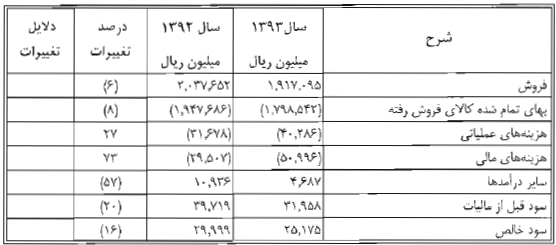 شرح سال ۱۳۹۳ سال ۱۳۹۲ درصد تغییرات دلایل تغییرات
میلیون ریال میلیون ریال
فروش ۱,۹۱۷,۰۹۵ ۲,۰۳۷,۶۵۲ (۶)
بهای تمام شده کالای فروش رفته (۱,۷۹۸,۵۴۲) (۱,۹۴۷,۶۸۶) (۸)
هزینه‌های عملیاتی (۴۰,۲۸۶) (۳۱,۶۷۸) ۲۷
هزینه‌های مالی (۵۰,۹۹۶) (۲۹,۵۰۷) ۷۳
سایر درآمدها ۴,۶۸۷ ۱۰,۹۳۶ (۵۷)
سود قبل از مالیات ۳۱,۹۵۸ ۳۹,۷۱۹ (۲۰)
سود خالص ۲۵,۱۷۵ ۲۹,۹۹۹ (۱۶)